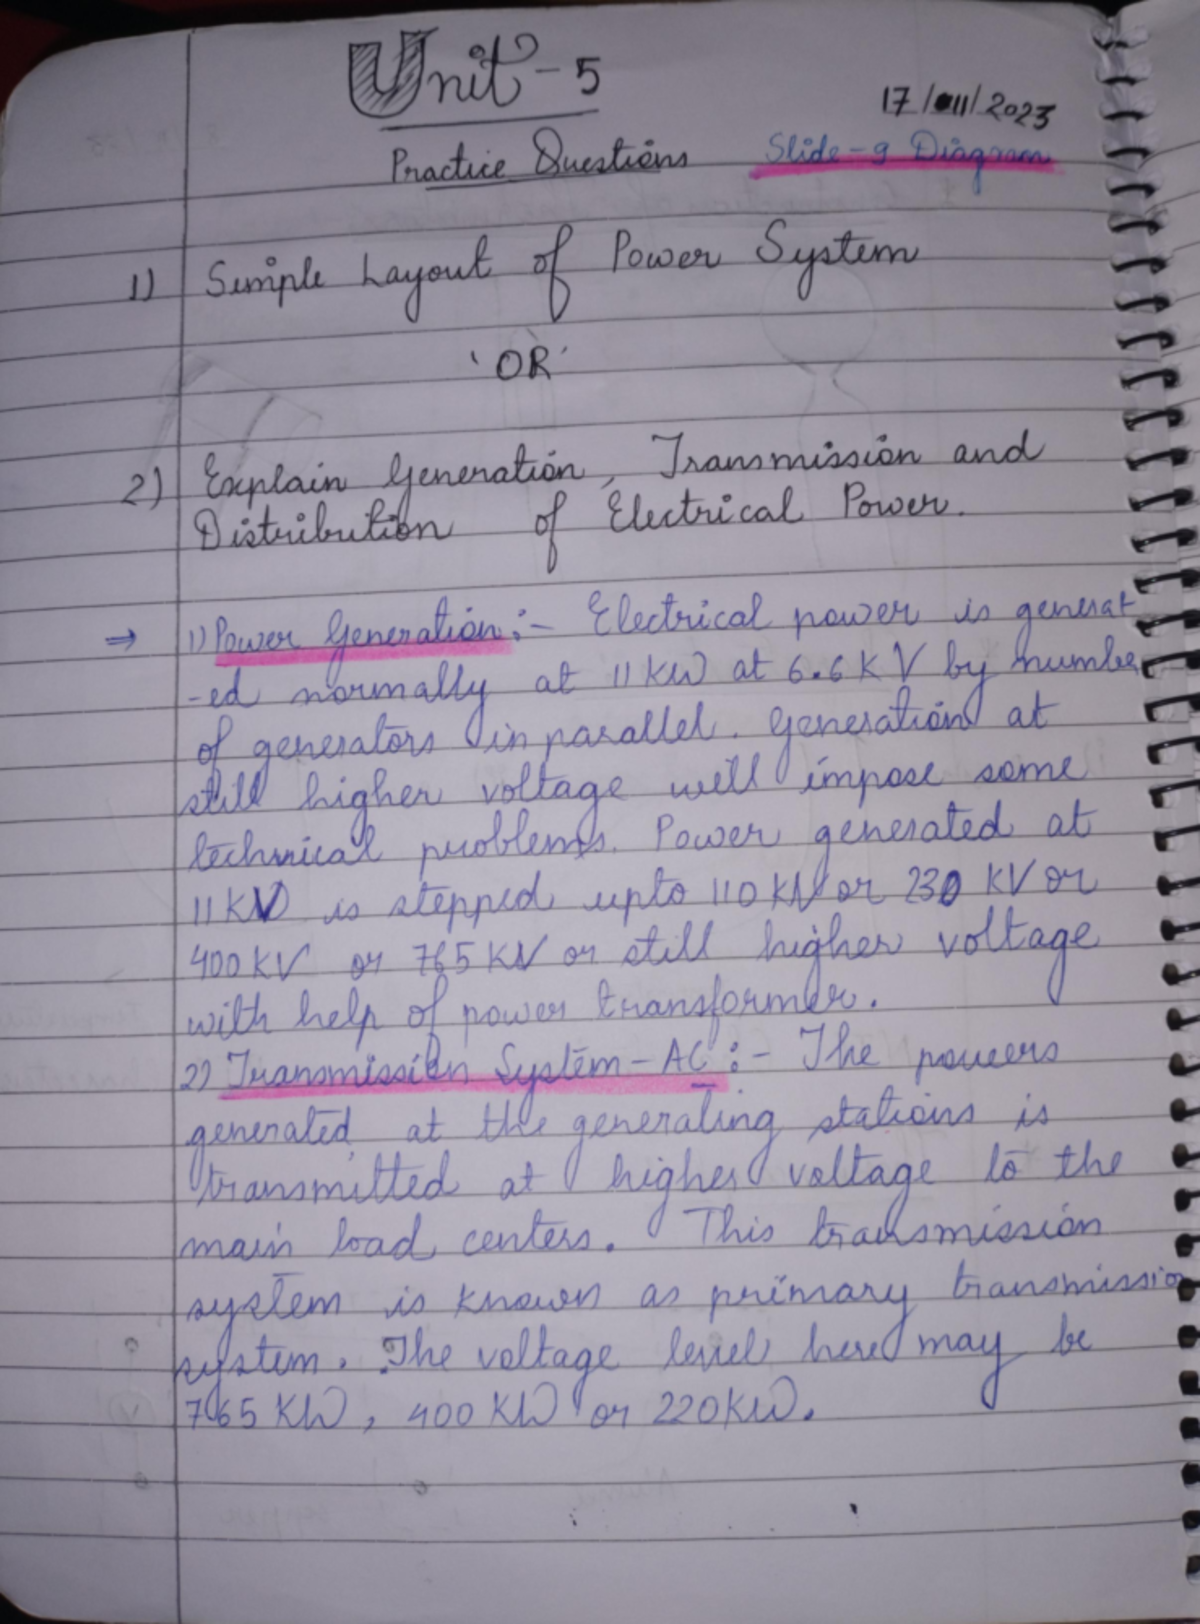 Unit - 5
17/11/2023
Practice Questions Slide-9 Diagram
1) Simple Layout of Power System
'OR'
2) Explain Generation, Transmission and
Distribution of Electrical Power.
⇒ 1) Power Generation :- Electrical power is generat
-ed normally at 11 KW at 6.6 KV by numbe
of generators in parallel. Generation at
still higher voltage will impose some
technical problems. Power generated at
11 KV is stepped upto 110 KV or 230 KV or
400 KV or 765 KV or still higher voltage
with help of power transformer.
2) Transmission System - AC :- The powers
generated at the generating stations is
transmitted at higher voltage to the
main load centers. This transmission
system is known as primary transmission
system. The voltage level here may be
765 KW, 400 KW or 220 KW.